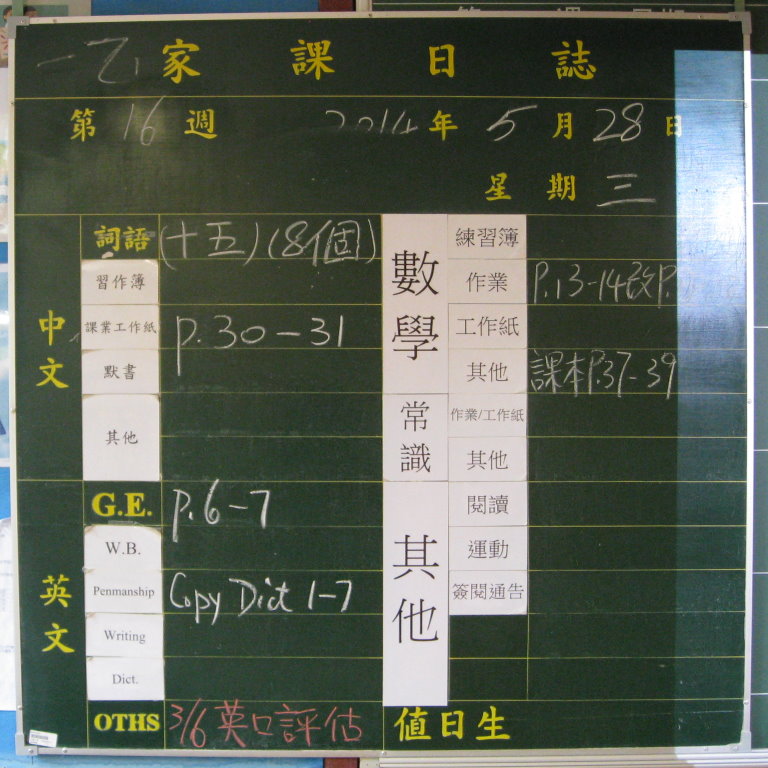 一乙 家課日誌
第16週 2014年5月28日
星期三
中文
詞語 (十五)(8個)
習作簿
課業工作紙 P.30-31
默書
其他
英文
G.E. P.6-7
W.B.
Penmanship Copy Dict 1-7
Writing
Dict.
OTHS 3/6 英口評估
數學
練習簿
作業 P.13-14改P.
工作紙
其他 課本P.37-39
常識
作業/工作紙
其他
其他
閱讀
運動
簽閱通告
值日生